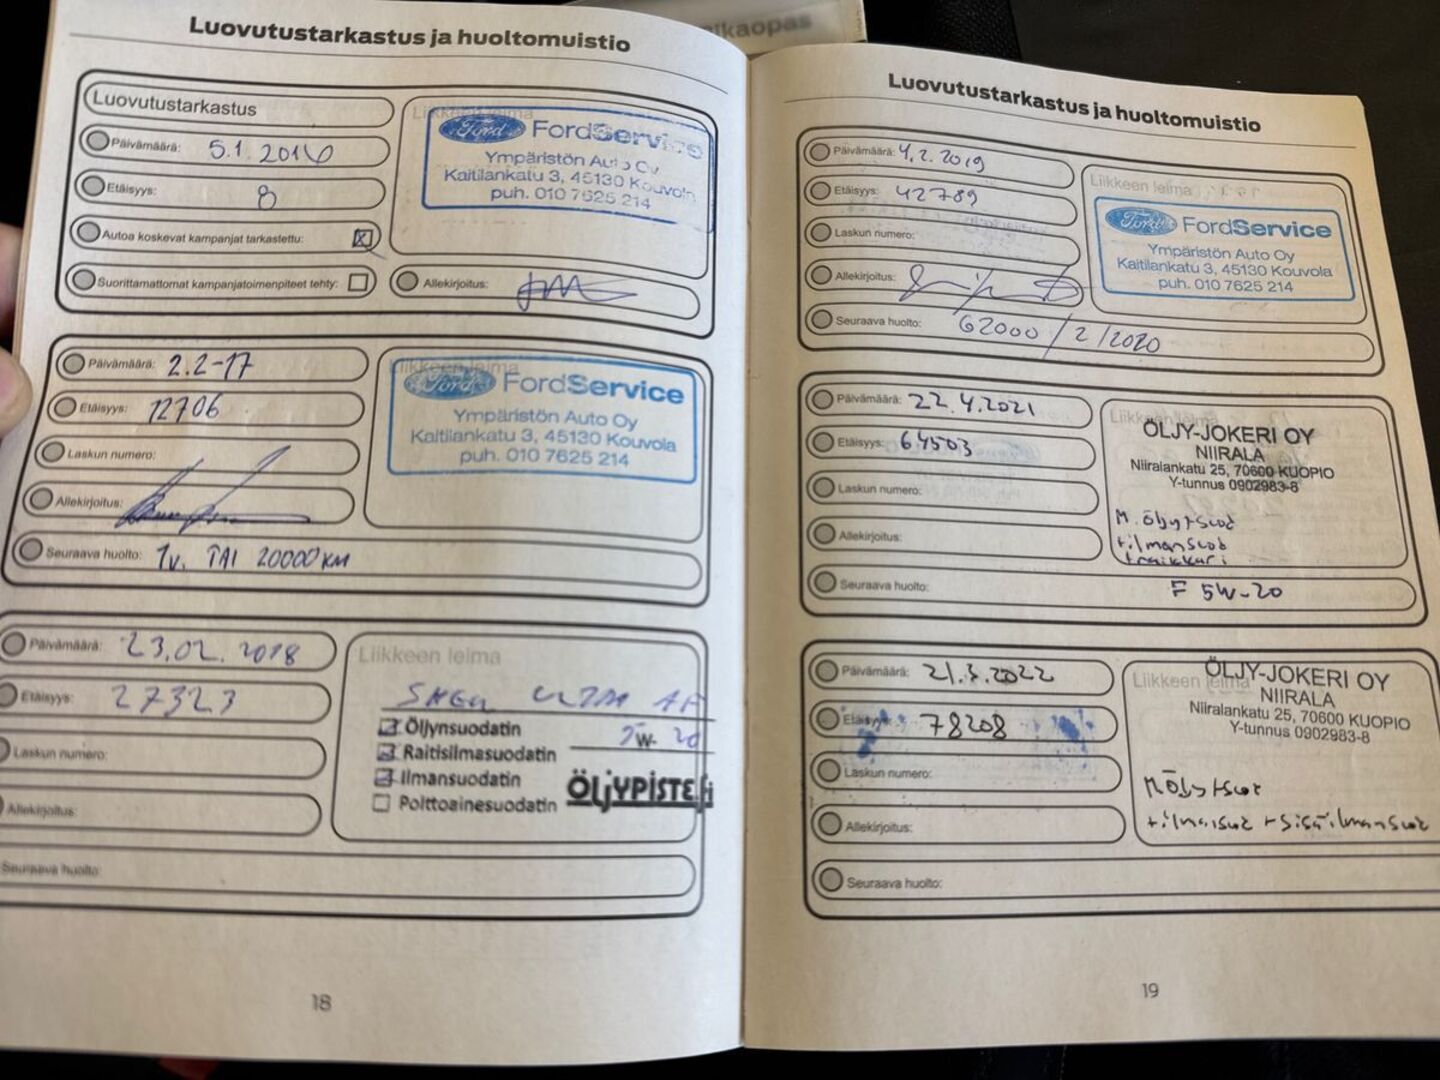 ikaopas
Luovutustarkastus ja huoltomuistio
Luovutustarkastus
Päivämäärä: 5.1.2016
Etäisyys: 8
Autoa koskevat kampanjat tarkastettu:
Suorittamattomat kampanjatoimenpiteet tehty:
Allekirjoitus:
Liikkeen leima
Ford FordService
Ympäristön Auto Oy
Kaitilankatu 3, 45130 Kouvola
puh. 010 7625 214
Päivämäärä: 2.2-17
Etäisyys: 12706
Laskun numero:
Allekirjoitus:
Seuraava huolto: 1v. TAI 20000 KM
Liikkeen leima
Ford FordService
Ympäristön Auto Oy
Kaitilankatu 3, 45130 Kouvola
puh. 010 7625 214
Päivämäärä: 23.02.2018
Etäisyys: 27323
Laskun numero:
Allekirjoitus:
Seuraava huolto:
Liikkeen leima
AF
Öljynsuodatin 5W-20
Raitisilmasuodatin
Ilmansuodatin
Polttoainesuodatin
ÖLJYPISTE.fi
18
Luovutustarkastus ja huoltomuistio
Päivämäärä: 4.2.2019
Etäisyys: 42789
Laskun numero:
Allekirjoitus:
Seuraava huolto: 62000/2/2020
Liikkeen leima
Ford FordService
Ympäristön Auto Oy
Kaitilankatu 3, 45130 Kouvola
puh. 010 7625 214
Päivämäärä: 22.4.2021
Etäisyys: 64503
Laskun numero:
Allekirjoitus:
Seuraava huolto: F 5W-20
Liikkeen leima
ÖLJY-JOKERI OY
NIIRALA
Niiralankatu 25, 70600 KUOPIO
Y-tunnus 0902983-8
M. öljy+suod
+ilmansuod
+raikkari
Päivämäärä: 21.3.2022
Etäisyys: 78208
Laskun numero:
Allekirjoitus:
Seuraava huolto:
Liikkeen leima
ÖLJY-JOKERI OY
NIIRALA
Niiralankatu 25, 70600 KUOPIO
Y-tunnus 0902983-8
MÖljy+suod
+ilmansuod +sisäilmansuod
19